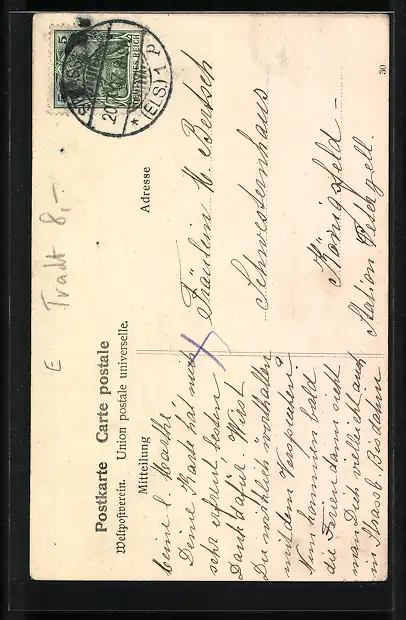 Postkarte Carte postale
Weltpostverein. Union postale universelle.
Mitteilung
Meine l. Marthe
Deine Karte hat mich
sehr erfreut besten
Dank dafür. Wirst
Du wohl
mit dem Versprechen?
Nun kommen bald
die Ferien dann sieht
man Dich vielleicht auch
in Strassb. Bis dahin
Adresse
Fräulein M. Bertsch
Schwesternhaus
Königsfeld -
Station Peterzell.
DEUTSCHES REICH
5
20
(ELS.) 1 P
*
30
E Tradt 8,-